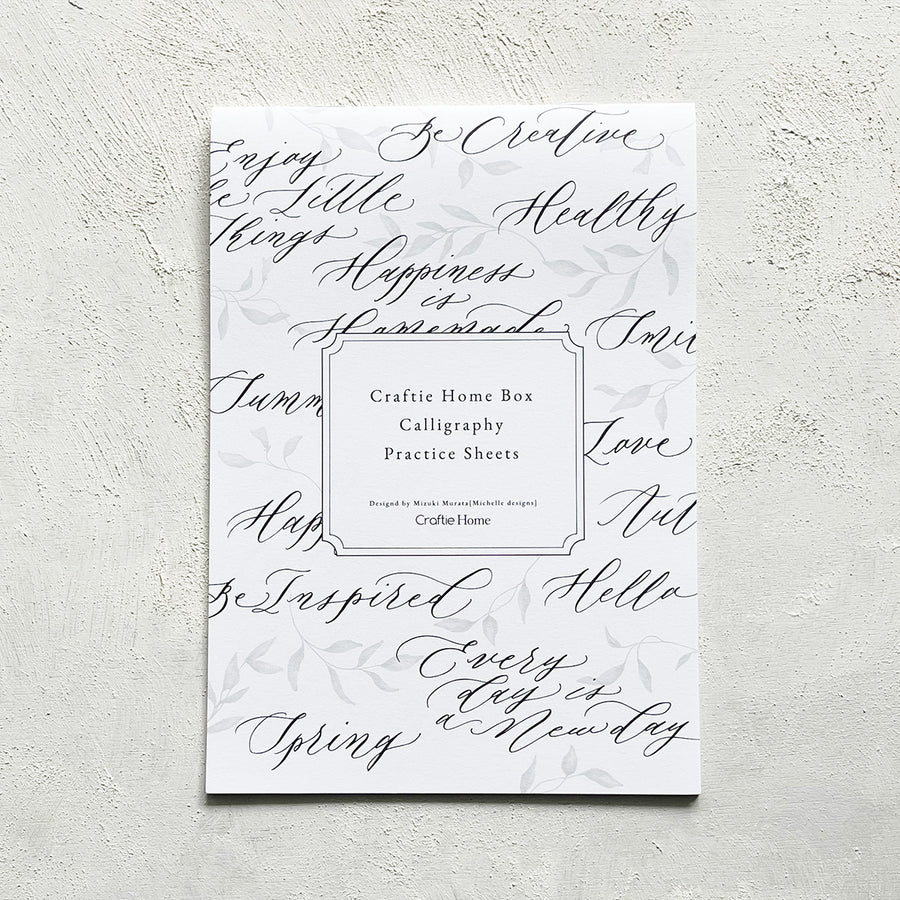 Be Creative
Enjoy
the Little
Things
Healthy
Happiness
is
Homemade
Smi
Summ
Craftie Home Box
Calligraphy
Practice Sheets
Designd by Mizuki Murata[Michelle designs]
Craftie Home
Love
Hap
Aut
Be Inspired
Hello
Every
day is
a New day
Spring